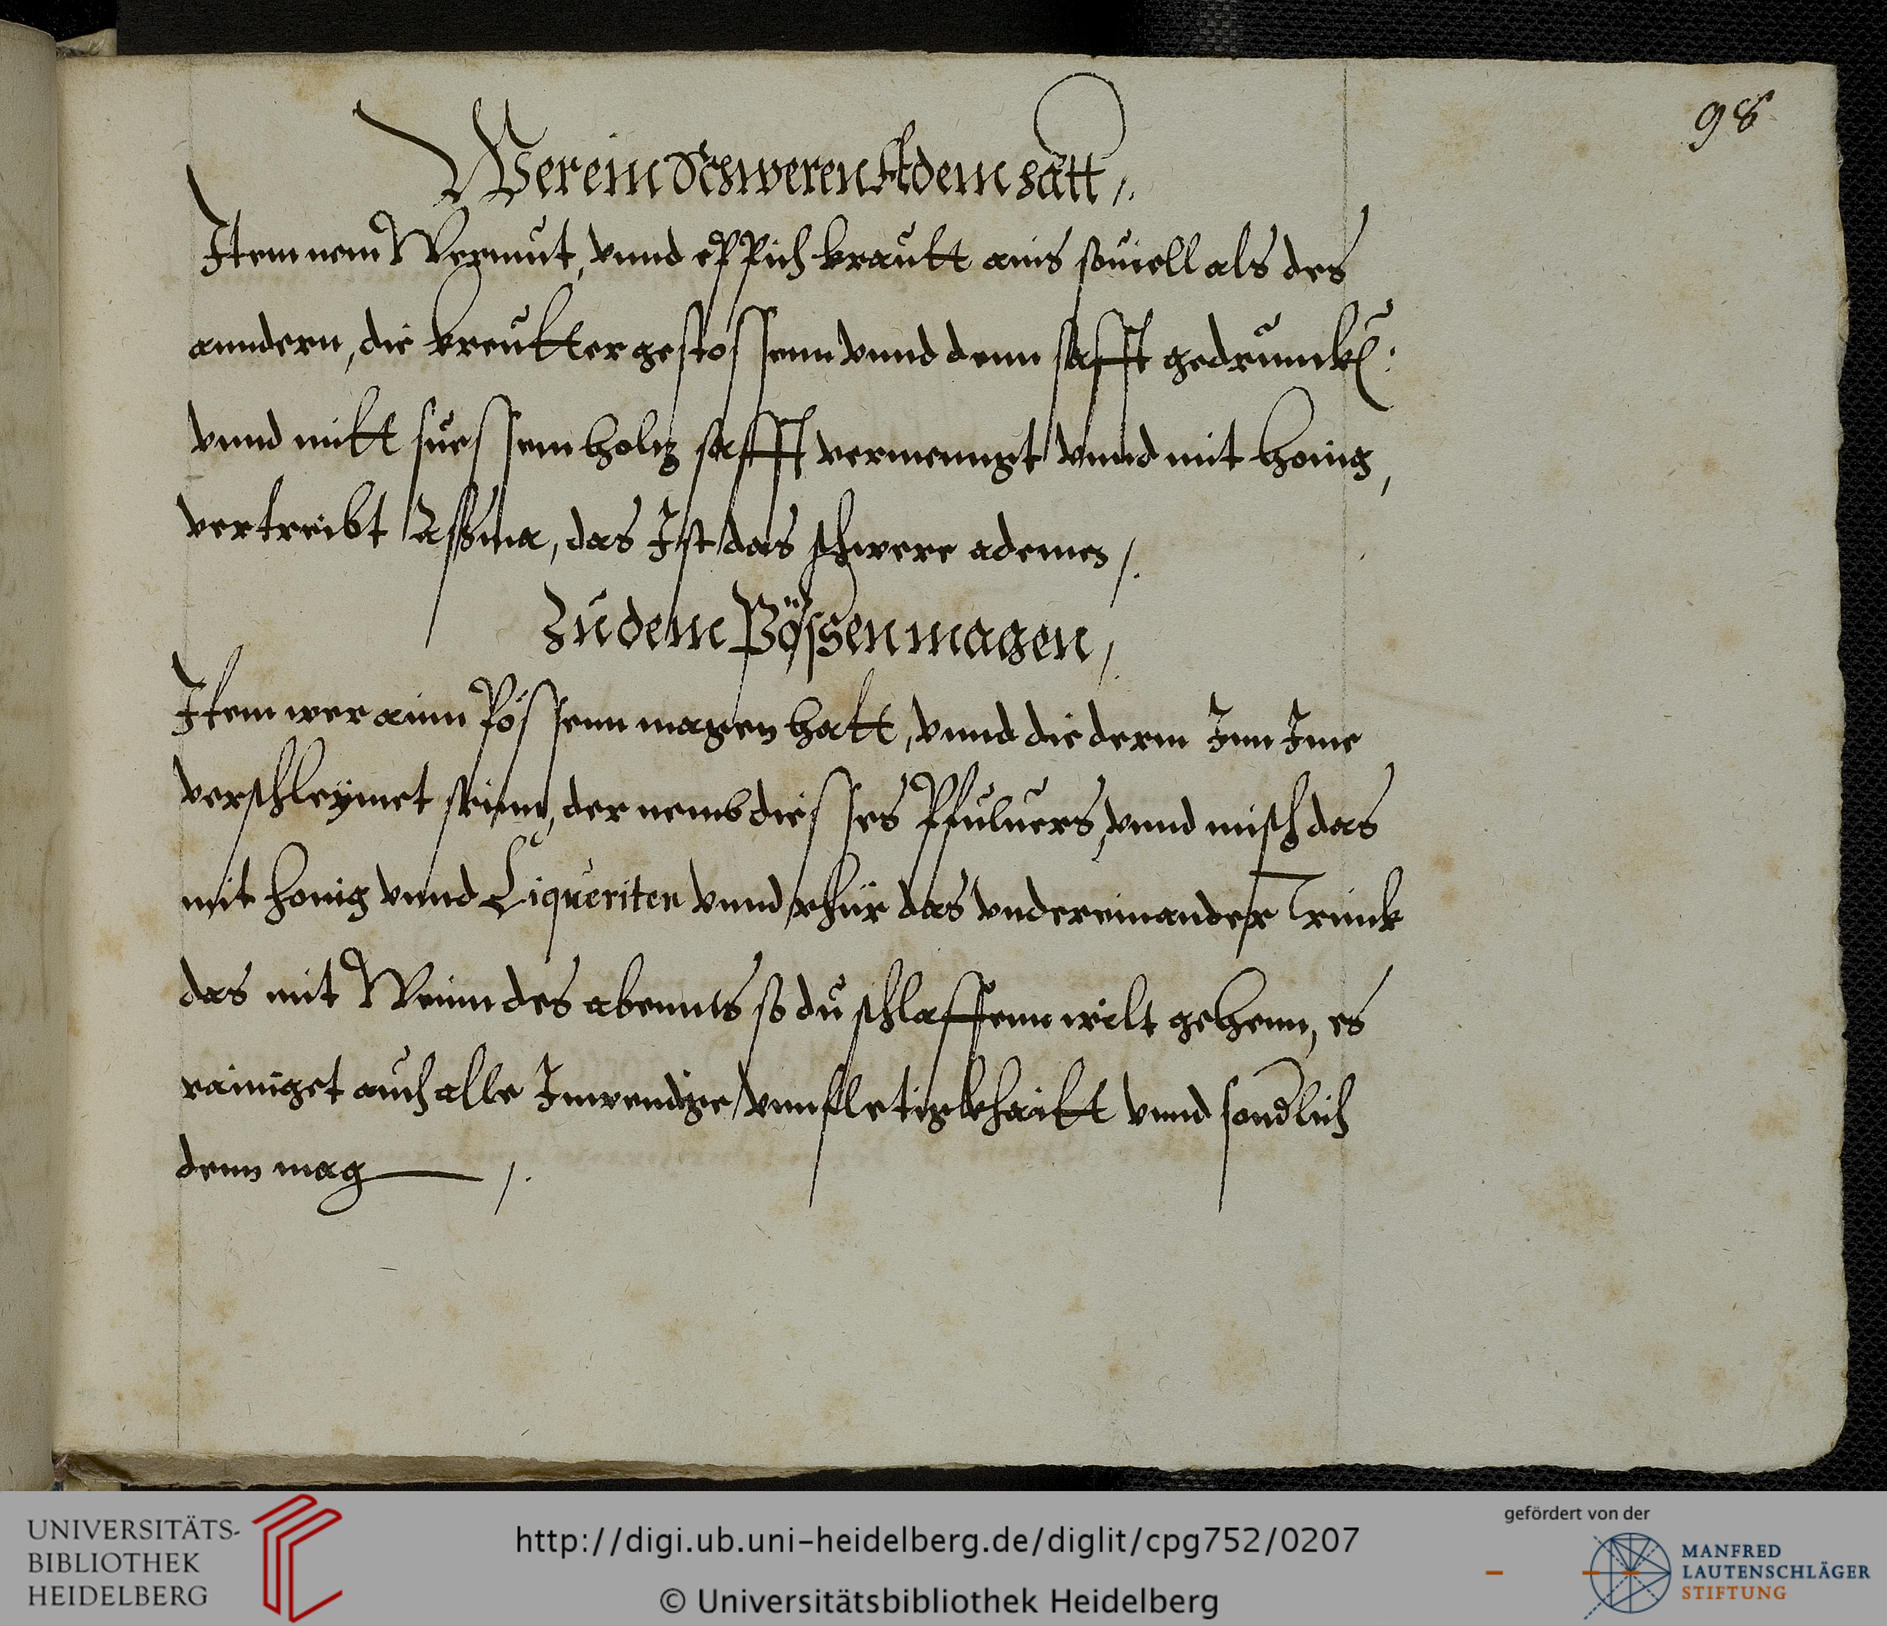 98
Wer ein Schweren Adem hatt /.
Item nem Wermut, vnnd eppich krautt ains souiell als des
anndern, die kreutter gestossenn vnnd denn safft gedrunck[en]
vnnd mitt suessem holtz safft vermenngt vnnd mit honig,
vertreibt Assma, das Ist das schwere ademen /.
Zu dem Pössen magen /.
Item wer ainn Pössenn magen hatt, vnnd die derm Inn Ime
verschleymet seinn, der nemb diesses Pfuluers, vnnd misch das
mit honig vnnd Liqueriten vnnd rhür das vndereinander Trinck
das mit Weinn des abennts so du schlaffenn wilt gehenn, es
rainiget auch alle Inwendige vnnfletigkhaitt vnnd sonndlich
denn mag /.
UNIVERSITÄTS-
BIBLIOTHEK
HEIDELBERG
http://digi.ub.uni-heidelberg.de/diglit/cpg752/0207
© Universitätsbibliothek Heidelberg
gefördert von der
MANFRED
LAUTENSCHLÄGER
STIFTUNG